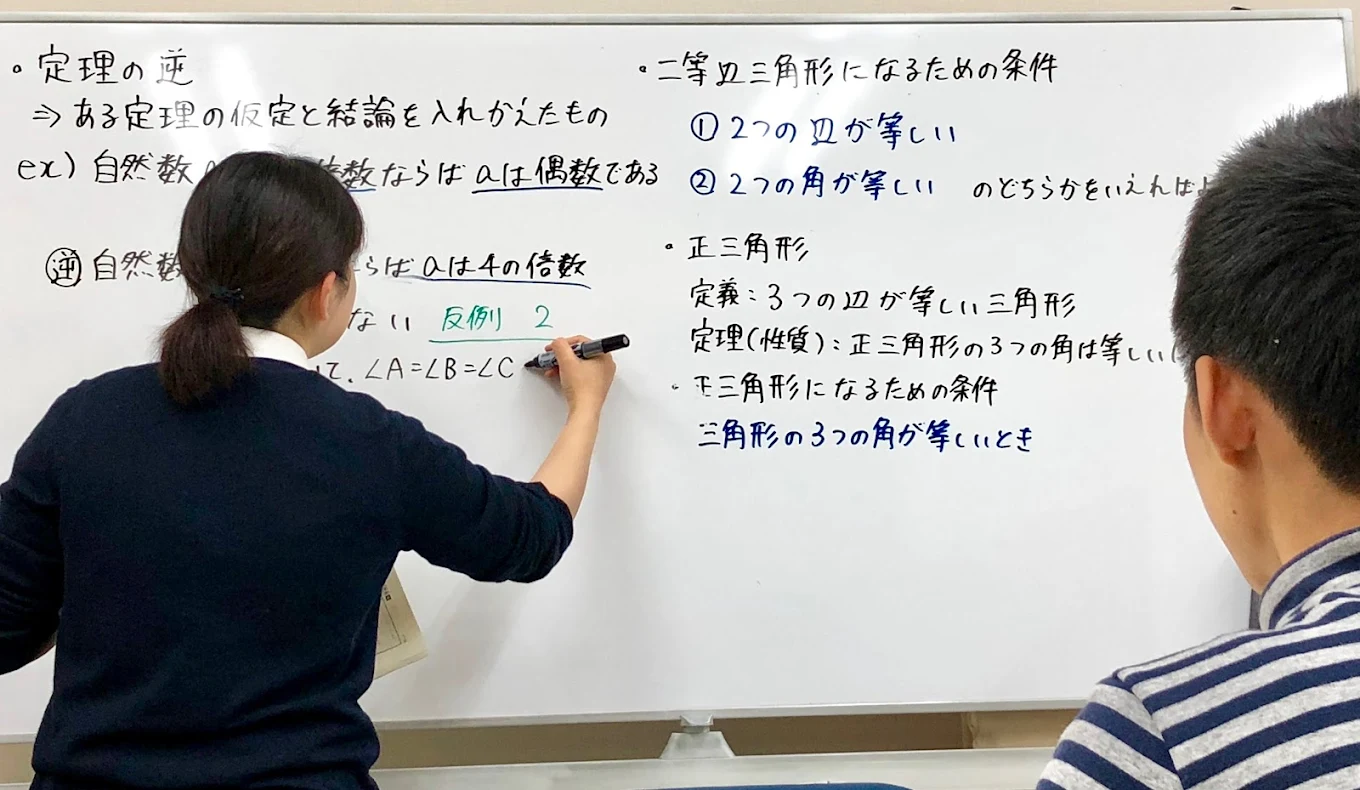 ・定理の逆
⇒ある定理の仮定と結論を入れかえたもの
ex) 自然数 倍数ならば aは偶数である
逆 自然数 らば aは4の倍数
ない 反例 2
て、∠A=∠B=∠C
・二等辺三角形になるための条件
① 2つの辺が等しい
② 2つの角が等しい のどちらかをいえれば
・正三角形
定義:3つの辺が等しい三角形
定理(性質):正三角形の3つの角は等しい
・正三角形になるための条件
三角形の3つの角が等しいとき